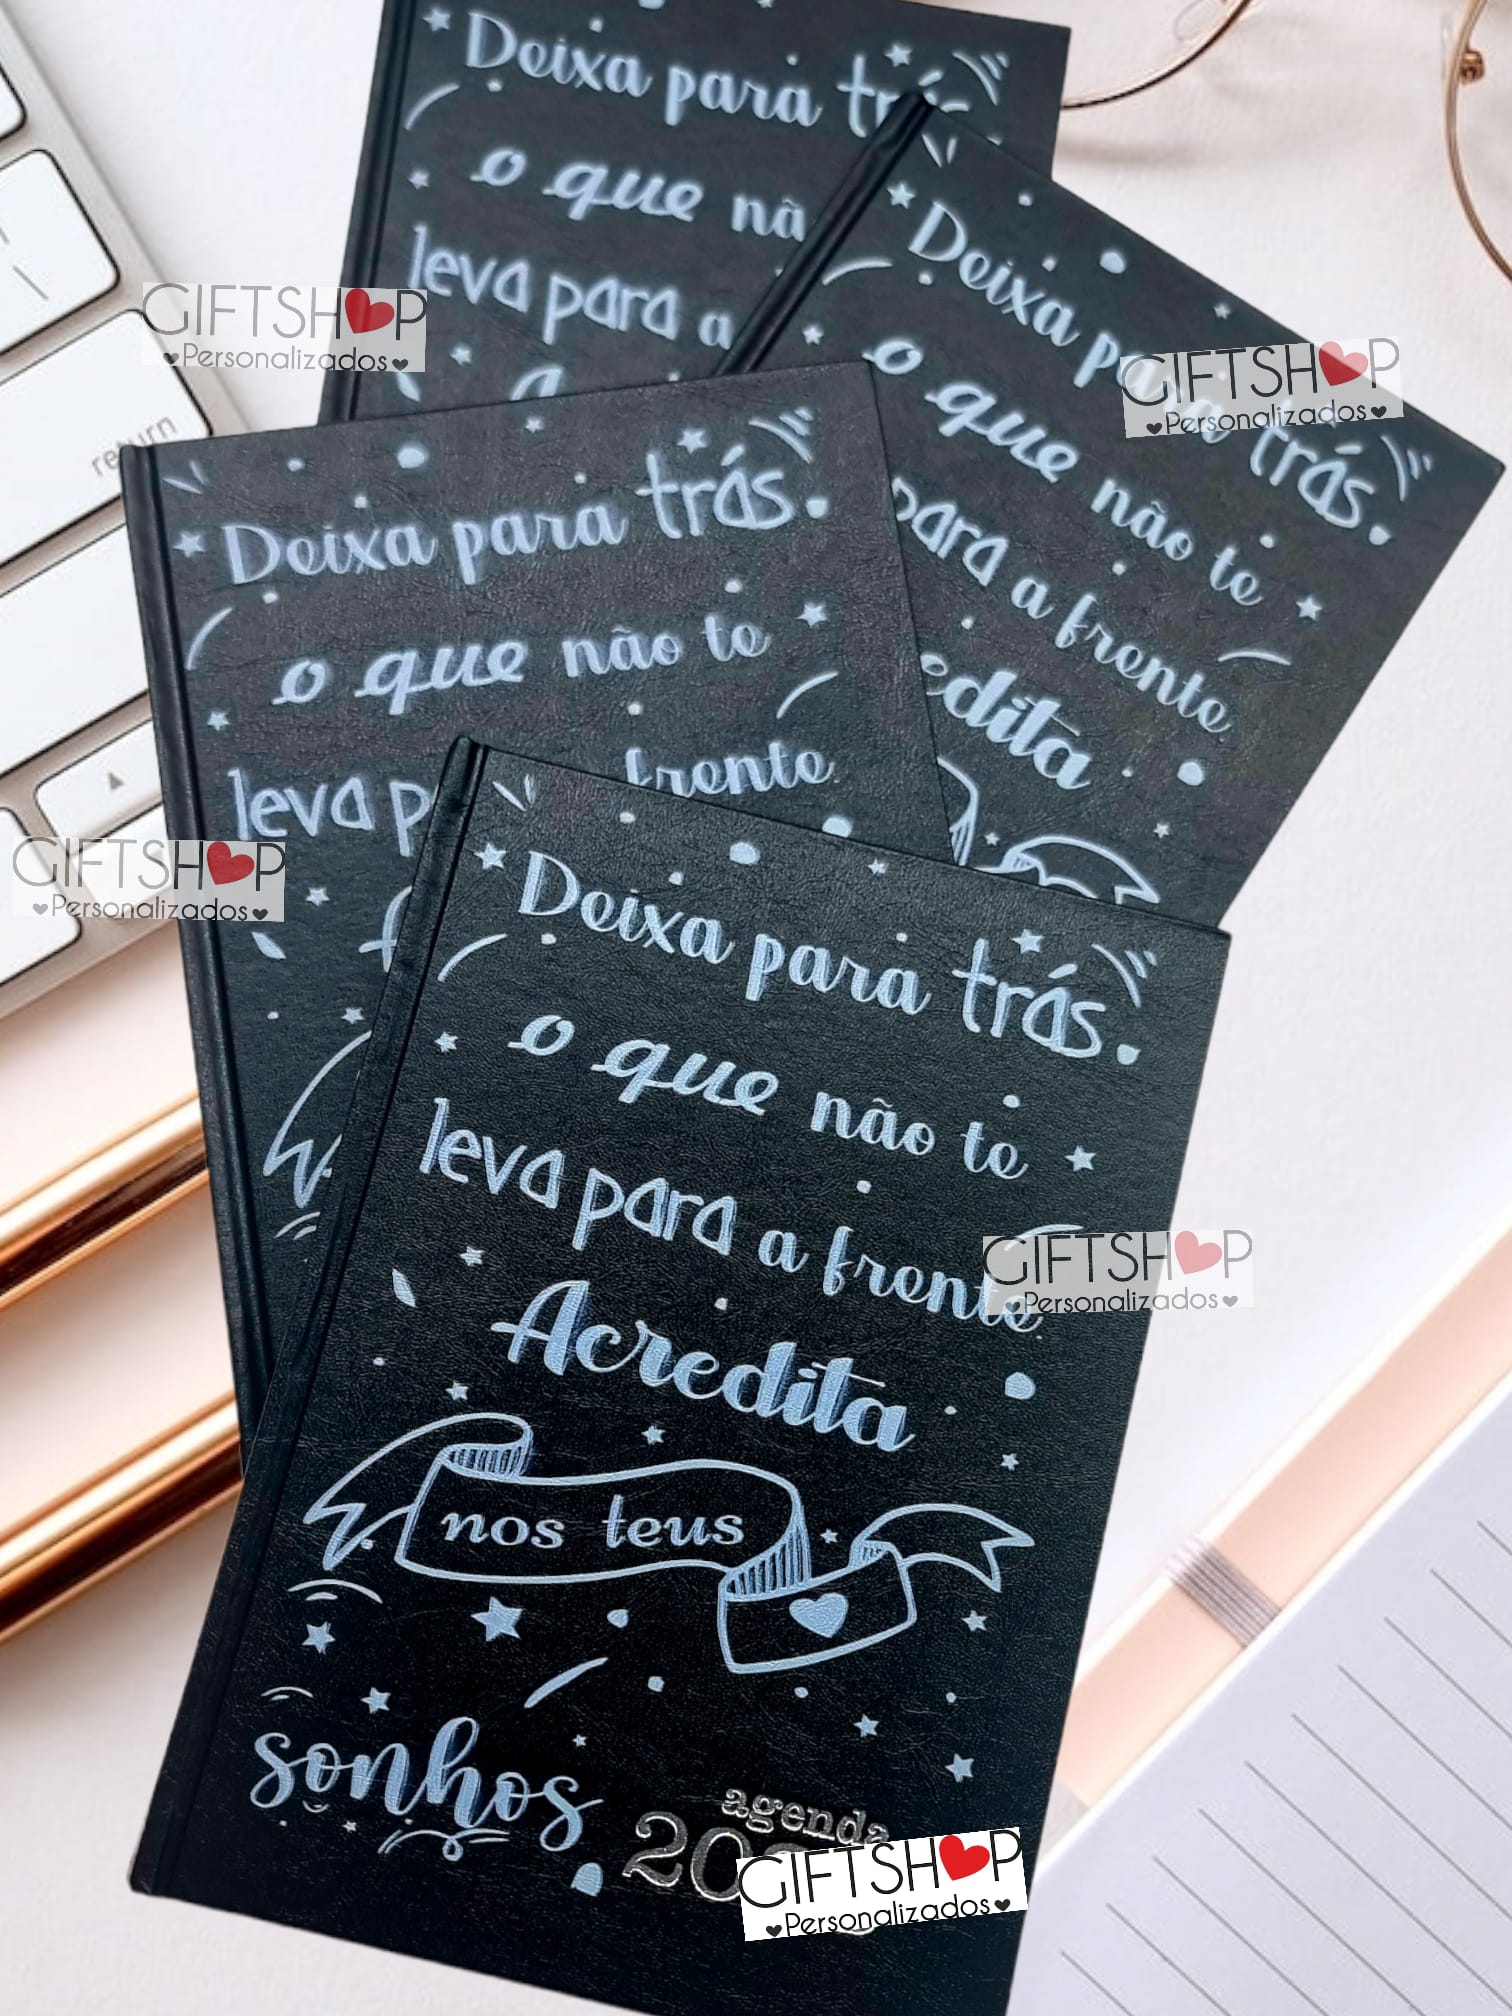 Deixa para
o que nã
leva para a
Deixa para trás.
o que não te
para a frente
GIFTSHOP
Personalizados
GIFTSHOP
Personalizados
return
Deixa para trás.
o que não te
leva p frente
GIFTSHOP
Personalizados
Deixa para trás.
o que não te
leva para a frente
Acredita
nos teus
sonhos
agenda
20
GIFTSHOP
Personalizados
GIFTSHOP
Personalizados